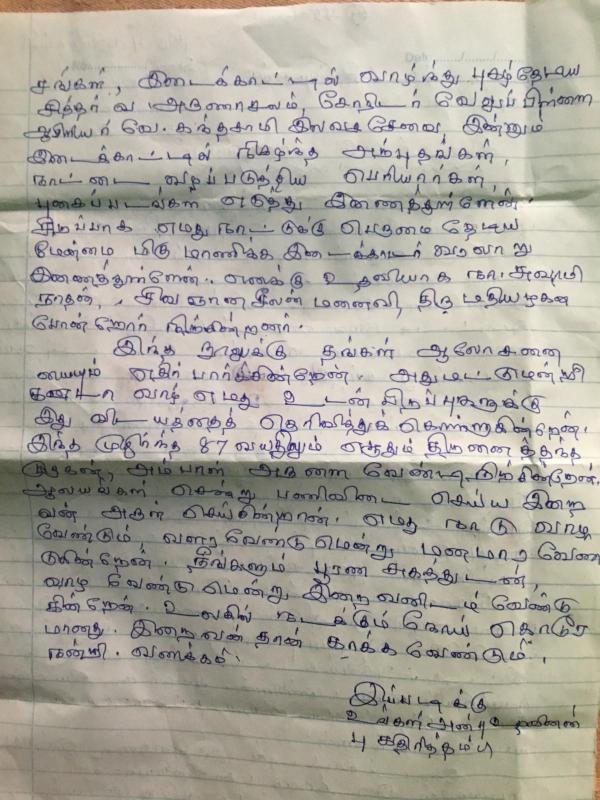 சங்கள், இடைக்காட்டில் வாழ்ந்து புகழ்தேடிய
சித்தர் வ அருணாசலம், சோதிடர் வேலுப்பிள்ளை
ஆசிரியர் வே. கந்தசாமி இலவச சேவை, இன்னும்
இடைக்காட்டில் நிகழ்ந்த அற்புதங்கள்,
நாட்டை வழிப்படுத்திய பெரியார்கள்,
புகைப்படங்கள் எடுத்து இணைத்துள்ளேன்.
சிறப்பாக எமது நாட்டுக்கு பெருமை தேடிய
மேன்மை மிகு மாணிக்க இடைக்காடர் வரலாறு
இணைத்துள்ளேன். எனக்கு உதவியாக நா. சுவாமி
நாதன், சிவஞானசீலன் மனைவி, திரு மதியழகன்
போன்றோர் நிற்கின்றனர்.
இந்த நூலுக்கு தங்கள் ஆலோசனை
யையும் எதிர்பார்க்கின்றேன். அதுமட்டுமன்றி
கனடா வாழ் எமது உடன் பிறப்புகளுக்கு
இது விடயத்தைத் தெரிவித்துக் கொள்ளுகின்றேன்.
இந்த முதிர்ந்த 87 வயதிலும் எழுதும் திறனைத் தந்த
முருகன், அம்பாள் அருளை வேண்டி நிற்கின்றேன்.
ஆலயங்கள் சென்று பணிவிடை செய்ய இறை
வன் அருள் செய்கின்றான். எமது நாடு வாழ
வேண்டும், வளர வேண்டுமென்று மனமார வேண்
டுகின்றேன். நீங்களும் பூரண சுகத்துடன்,
வாழ வேண்டுமென்று இறைவனிடம் வேண்டு
கின்றேன். உலகில் நடக்கும் நோய் கொடூர
மானது. இறைவன் தான் காக்க வேண்டும்.
நன்றி. வணக்கம்.
இப்படிக்கு
உங்கள் அன்பு உறவினன்